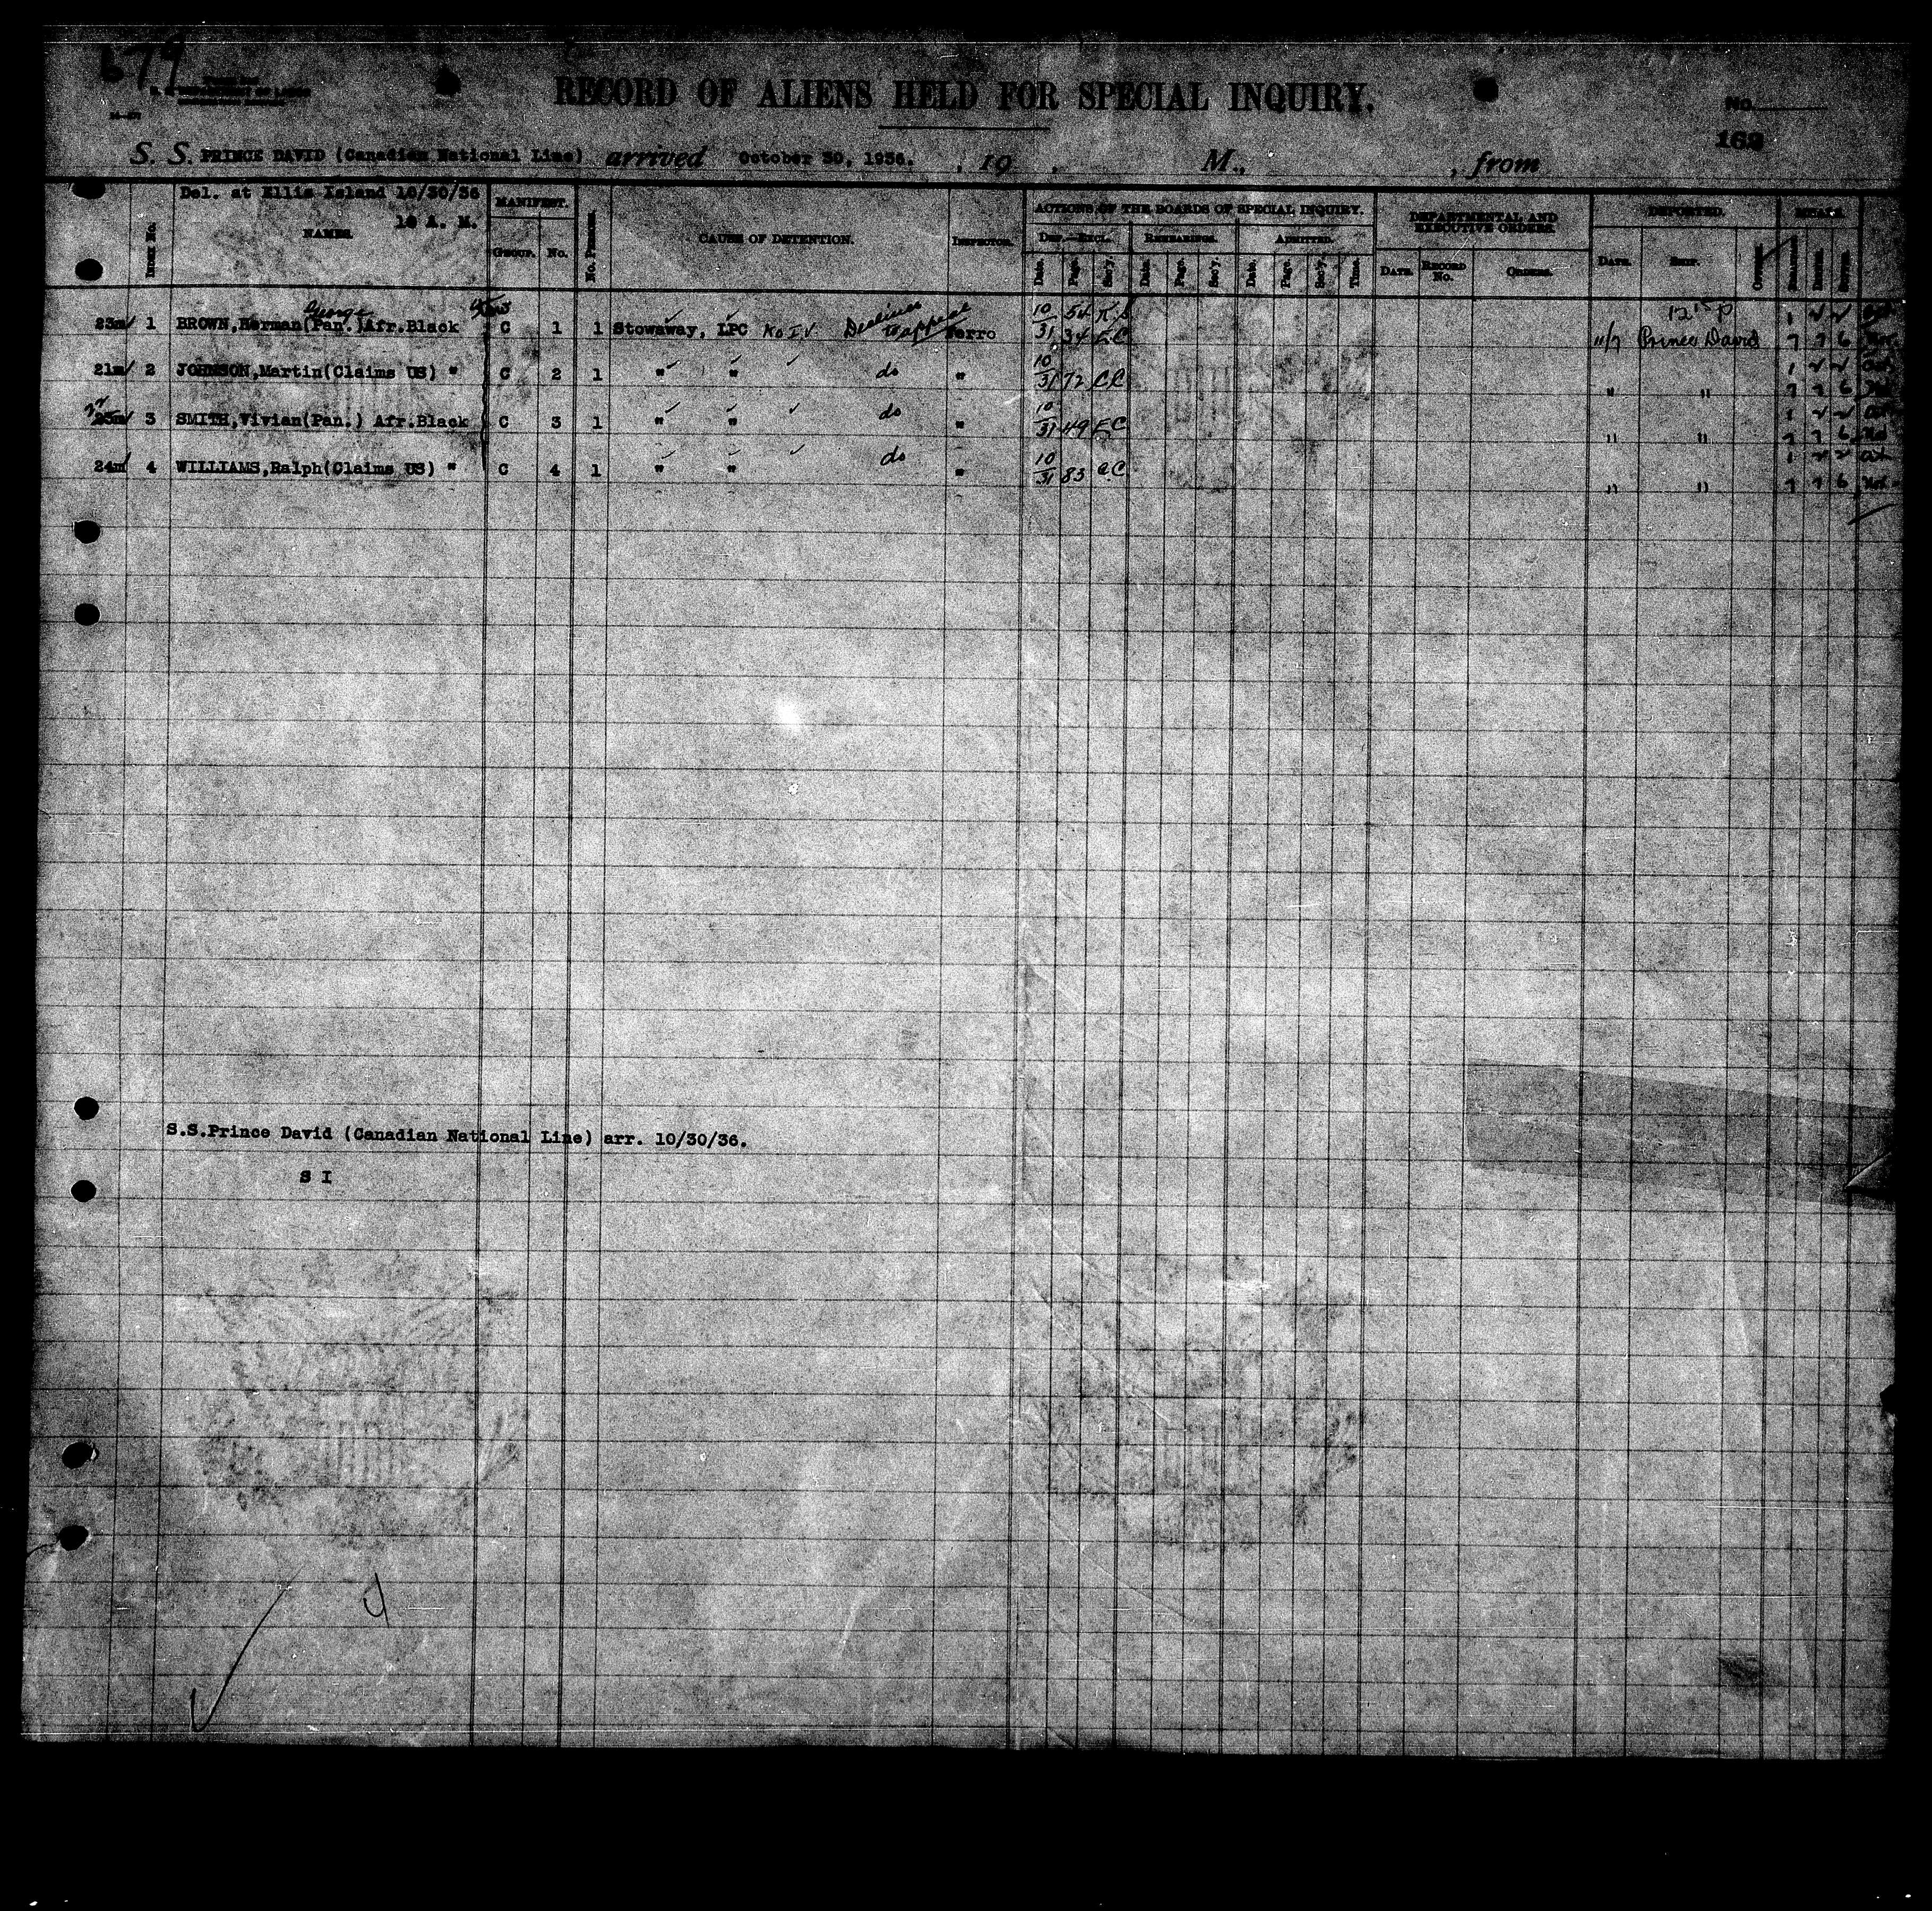 679
U. S. DEPARTMENT OF LABOR
RECORD OF ALIENS HELD FOR SPECIAL INQUIRY.
No.
162
S. S. PRINCE DAVID (Canadian National Line) arrived October 30, 1936. , 19 , M., , from
Del. at Ellis Island 10/30/36
10 A. M.
INDEX No. NAMES. MANIFEST. GROUP. No. No. PERSONS. CAUSE OF DETENTION. INSPECTOR. ACTIONS OF THE BOARDS OF SPECIAL INQUIRY. DEF.—EXCL. Date. Page. Sec'y. REHEARINGS. Date. Page. Sec'y. ADMITTED. Date. Page. Sec'y. Time. DEPARTMENTAL AND EXECUTIVE ORDERS. DATE. RECORD No. ORDERS. DEPORTED. DATE. SHIP. MEALS. BREAKFAST. DINNER. SUPPER.
George
23m 1 BROWN,Herman(Pan.)Afr.Black C 1 1 Stowaway, LPC No I V Declines to appeal Ferro 10/31 54 34 E.C 11/7 Prince David 1 7 7 6
21m 2 JOHNSON,Martin(Claims US) " C 2 1 " " do " 10/31 72 C.C " " 7 7 6
23m 3 SMITH,Vivian(Pan.) Afr.Black C 3 1 " " do " 10/31 49 E C " " 7 7 6
24m 4 WILLIAMS,Ralph(Claims US) " C 4 1 " " do " 10/31 83 C.C " " 7 7 6
S.S.Prince David (Canadian National Line) arr. 10/30/36.
S I
4